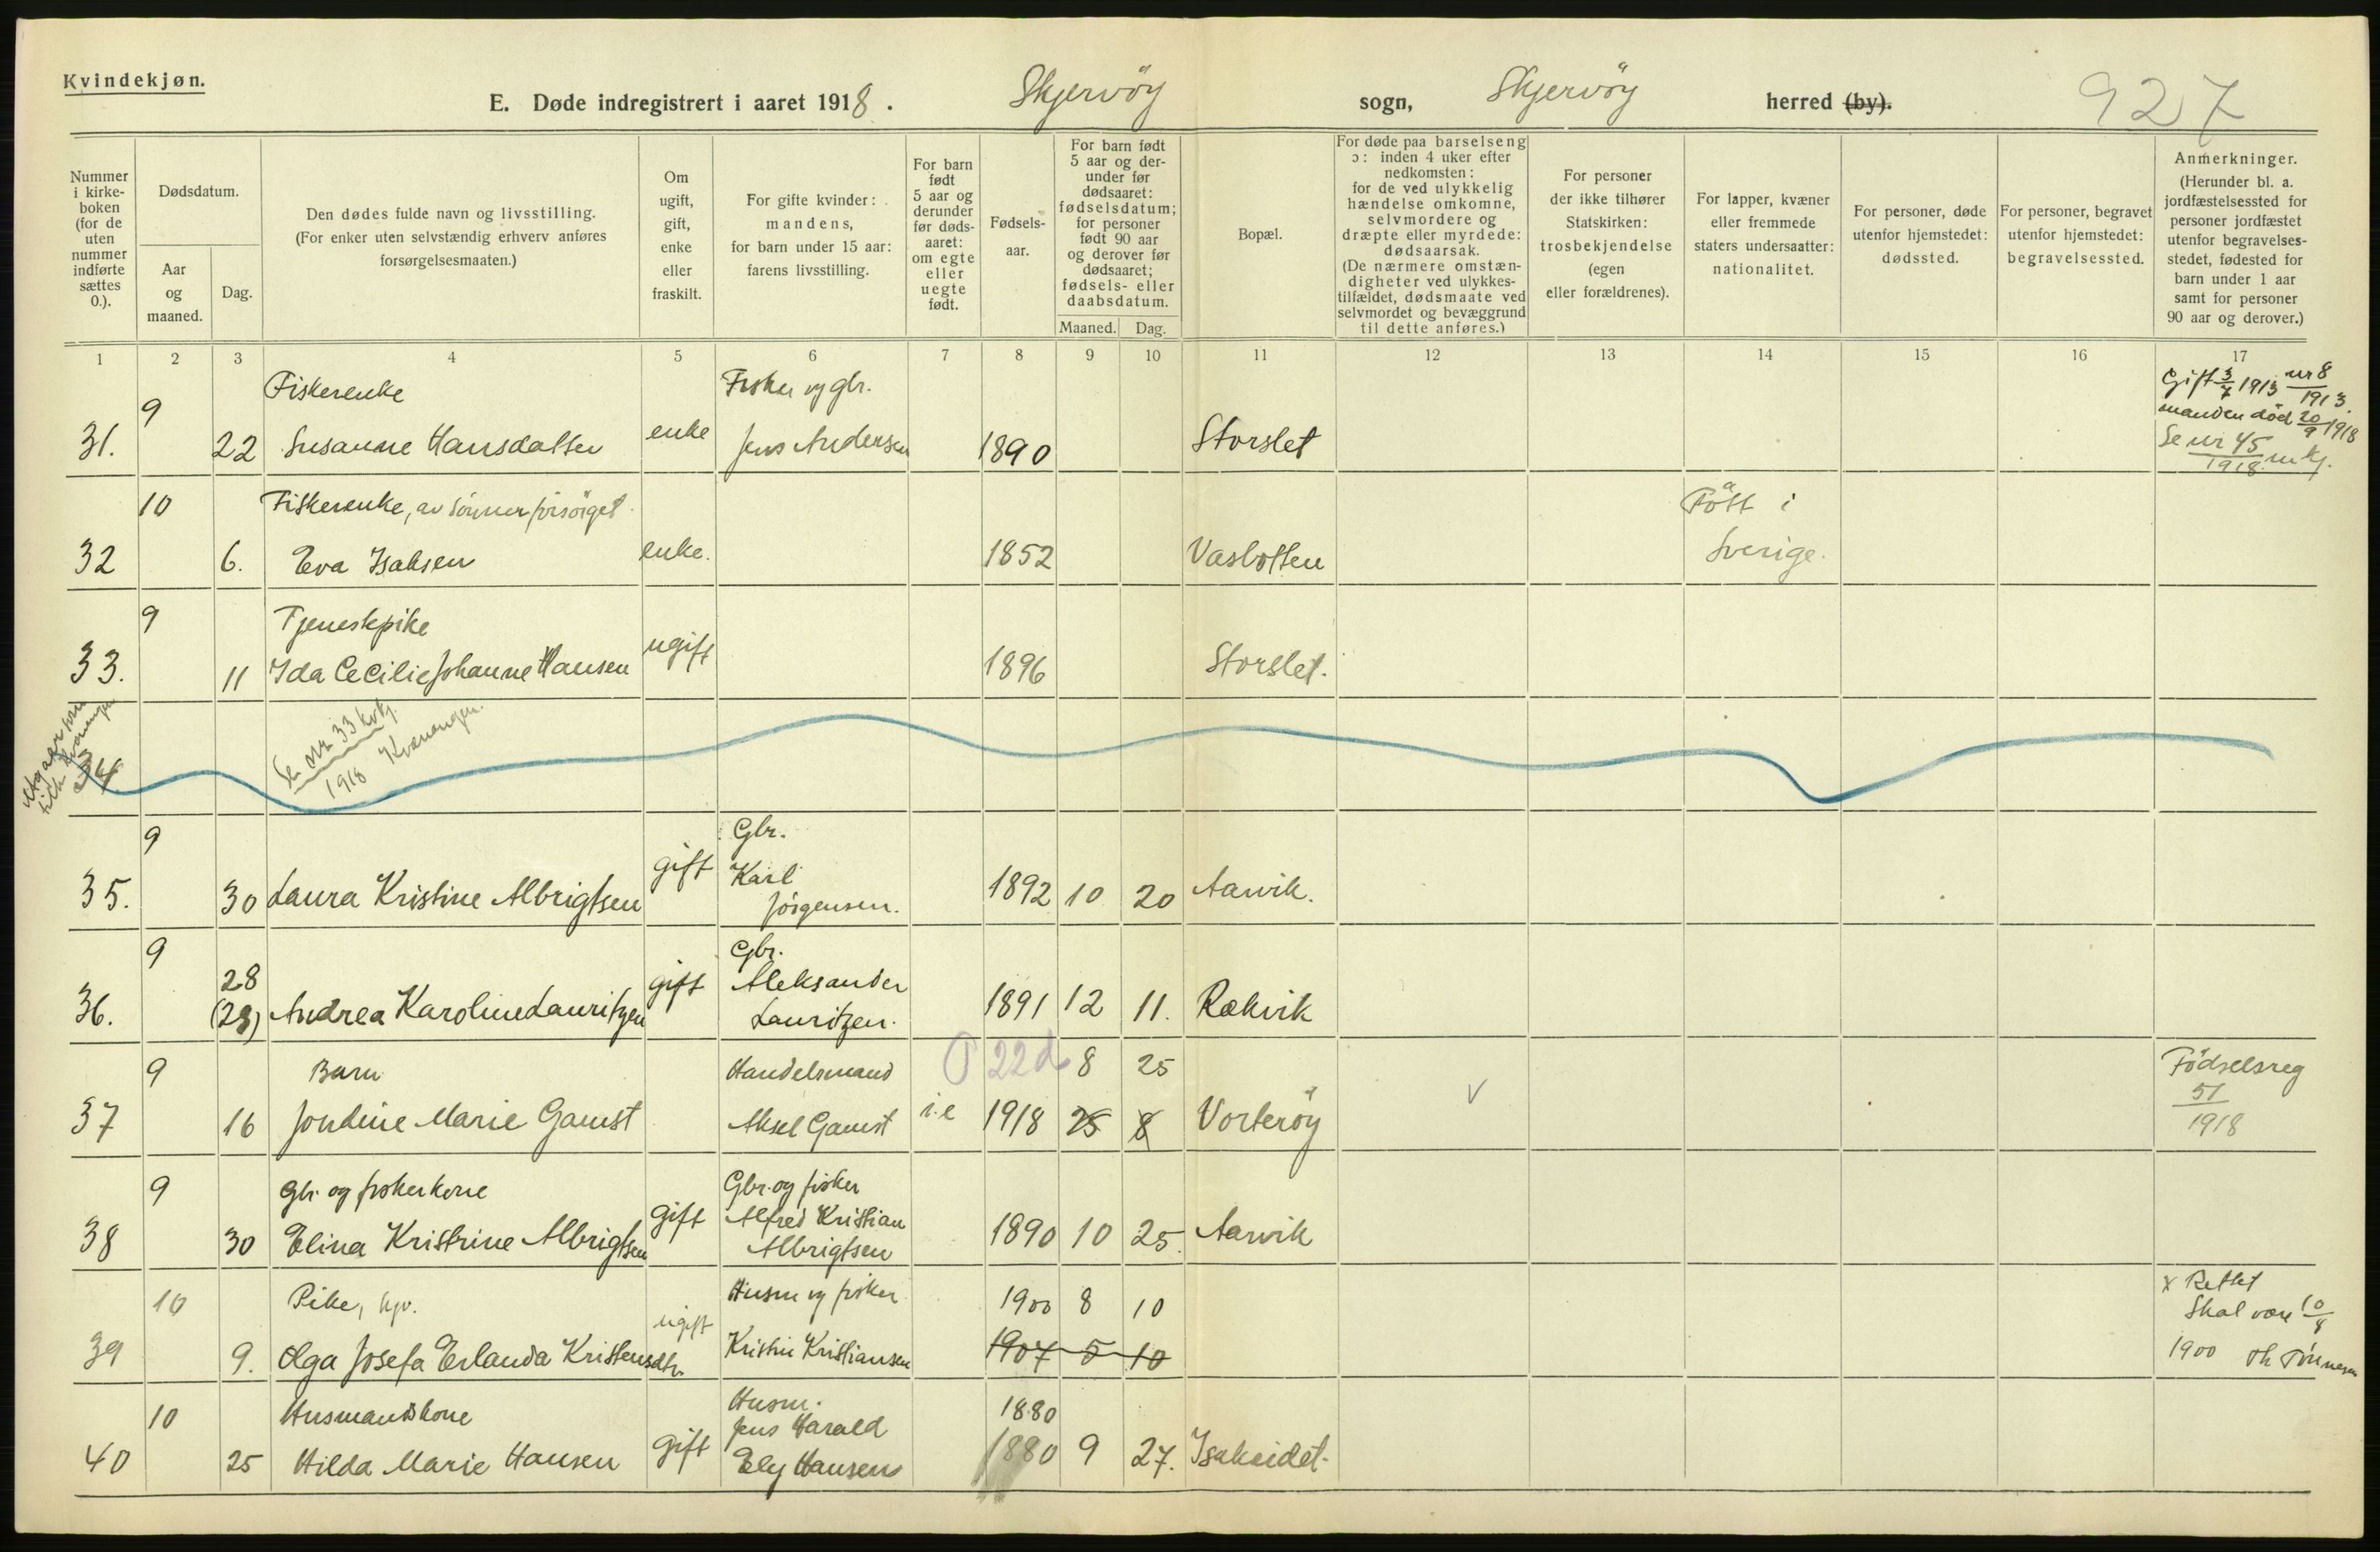 Kvindekjøn.
E. Døde indregistrert i aaret 1918. Skjervöy sogn, Skjervöy herred (by). 927
Nummer i kirke-boken (for de uten nummer indførte sættes 0.).
Dødsdatum.
Aar og maaned.
Dag.
Den dødes fulde navn og livsstilling.
(For enker uten selvstændig erhverv anføres
forsørgelsesmaaten.)
Om ugift, gift, enke eller fraskilt.
For gifte kvinder: mandens, for barn under 15 aar: farens livsstilling.
For barn født 5 aar og derunder før døds-aaret: om egte eller uegte født.
Fødsels-aar.
For barn født 5 aar og der-under før dødsaaret: fødselsdatum; for personer født 90 aar og derover før dødsaaret; fødsels- eller daabsdatum.
Maaned. Dag.
Bopæl.
For døde paa barselseng
ɔ: inden 4 uker efter
nedkomsten:
for de ved ulykkelig
hændelse omkomne,
selvmordere og
dræpte eller myrdede:
dødsaarsak.
(De nærmere omstæn-
digheter ved ulykkes-
tilfældet, dødsmaate ved
selvmordet og bevæggrund
til dette anføres.)
For personer
der ikke tilhører
Statskirken:
trosbekjendelse
(egen
eller forældrenes).
For lapper, kvæner
eller fremmede
staters undersaatter:
nationalitet.
For personer, døde
utenfor hjemstedet:
dødssted.
For personer, begravet
utenfor hjemstedet:
begravelsessted.
Anmerkninger.
(Herunder bl. a.
jordfæstelsessted for
personer jordfæstet
utenfor begravelses-
stedet, fødested for
barn under 1 aar
samt for personer
90 aar og derover.)
1 2 3 4 5 6 7 8 9 10 11 12 13 14 15 16 17
9 Fiskerenke Fisker og gbr. Gift 3/7 1913 nr 8/1913.
manden död 20/9 1918
31. 22 Susanne Hansdatter enke Jens Andersen 1890 Storslet Se nr 45/1918 m kj.
10 Fiskerenke, av sönner forsörget Fött i
32 6. Eva Isaksen enke. 1852 Vasbotten Sverige.
9 Tjenestepike
33. 11 Ida Cecilie Johanne Hansen ugift 1896 Storslet.
34 Se nr 33 kvkj. 1918 Kvænangen.
9 Gbr.
35. 30 Laura Kristine Albrigtsen gift Karl Jörgensen. 1892 10 20 Aarvik.
9 28 Gbr.
36. (28) Andrea Karoline Lauritzen gift Aleksander Lauritzen. 1891 12 11. Rækvik
9 Barn Handelsmand 22d 8 25 Födselsreg
37 16 Jondine Marie Gamst Aksel Gamst i.e 1918 25 8 Vorteröy V 51/1918
9 Gbr. og fiskerkone Gbr. og fisker
38 30 Elina Kristine Albrigtsen gift Alfred Kristian Albrigtsen 1890 10 25. Aarvik
10 Pike, hjv. Husm og fisker 1900 8 10 x Rettet
Skal være 10/8
39 9. Olga Josefa Erlanda Kristensdtr. ugift Kristin Kristiansen 1907 5 10 1900 Th Tönnesen
10 Husmandskone Husm. 1880
40 25 Hilda Marie Hansen gift Jens Harald Ely Hansen 1880 9 27. Isakeidet.